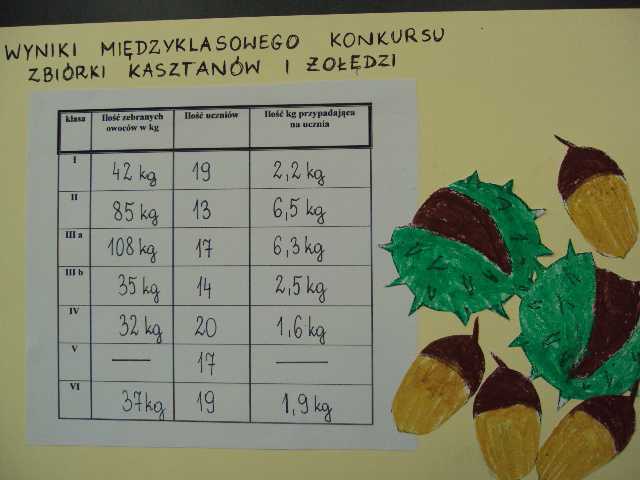 WYNIKI MIĘDZYKLASOWEGO KONKURSU
ZBIÓRKI KASZTANÓW I ŻOŁĘDZI
klasa Ilość zebranych owoców w kg Ilość uczniów Ilość kg przypadająca na ucznia
I 42 kg 19 2,2 kg
II 85 kg 13 6,5 kg
III a 108 kg 17 6,3 kg
III b 35 kg 14 2,5 kg
IV 32 kg 20 1,6 kg
V — 17 —
VI 37kg 19 1,9 kg